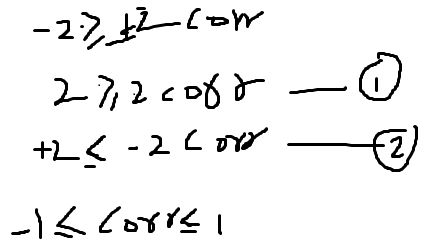 -2 ≥ ±2 cosr
2 ≥ 2 cos γ — ①
+2 ≤ -2 cos γ — ②
-1 ≤ cos γ ≤ 1